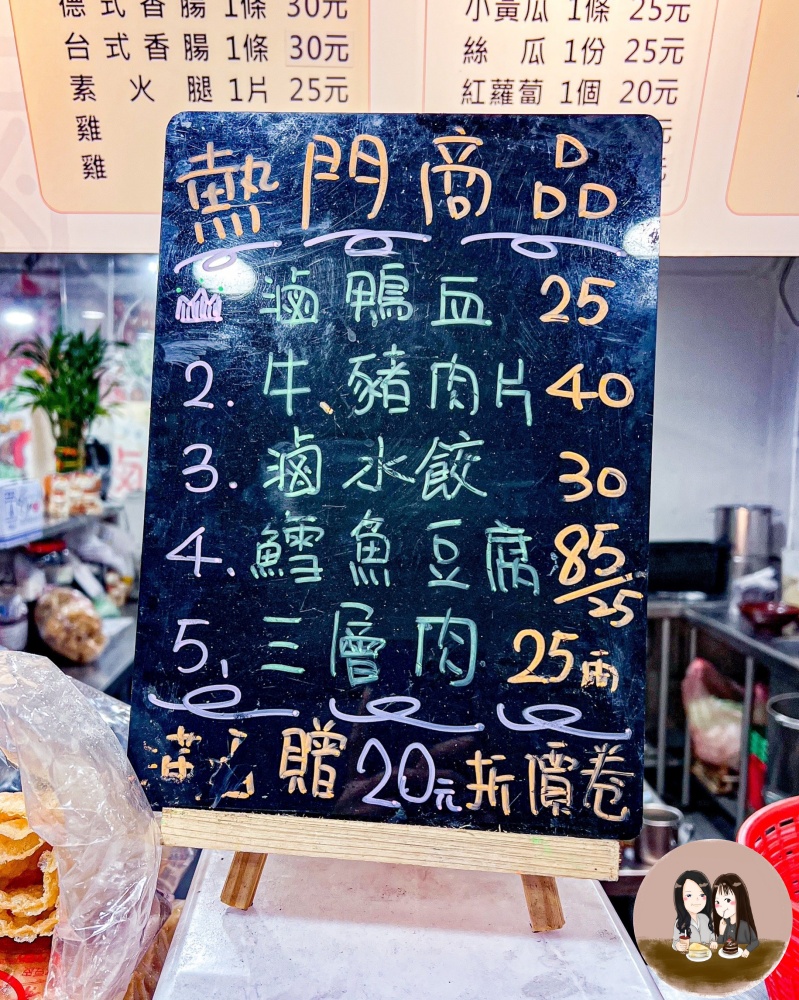 德式香腸 1條 30元
台式香腸 1條 30元
素火腿 1片 25元
雞
雞
小黃瓜 1條 25元
絲瓜 1份 25元
紅蘿蔔 1個 20元
元
熱門商品
滷鴨血 25
2. 牛、豬肉片 40
3. 滷水餃 30
4. 鱈魚豆腐 85/25
5. 三層肉 25兩
滿 贈20元折價卷